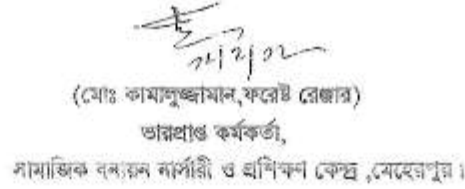 (মোঃ কামালুজ্জামান,ফরেষ্ট রেঞ্জার)
ভারপ্রাপ্ত কর্মকর্তা,
সামাজিক বনায়ন নার্সারী ও প্রশিক্ষণ কেন্দ্র ,মেহেরপুর।